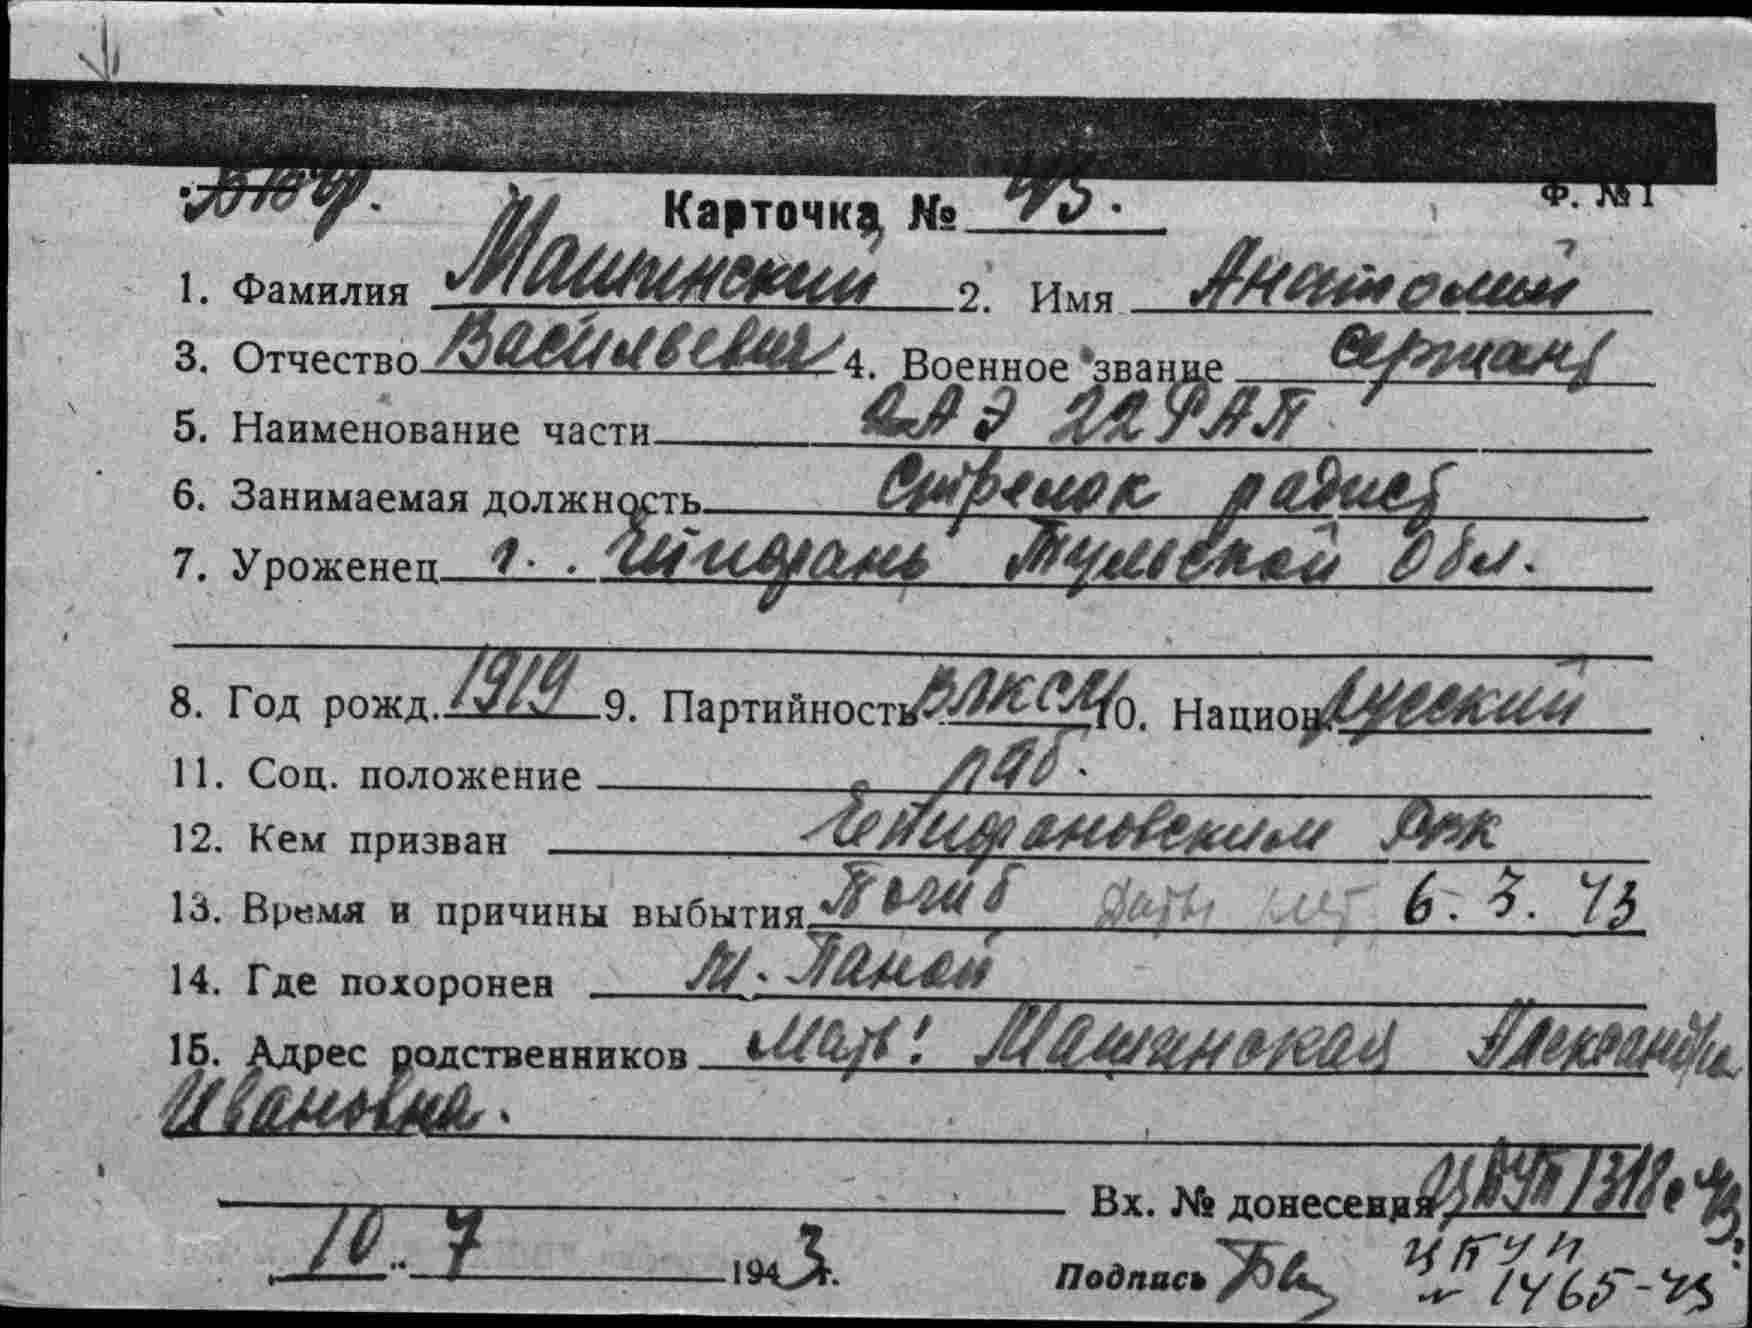 Карточка № 43. Ф. №1
1. Фамилия Машинский 2. Имя Анатолий
3. Отчество Васильевич 4. Военное звание сержант
5. Наименование части 2 АЭ 22 РАП
6. Занимаемая должность Стрелок радист
7. Уроженец г. Епифань Тульской Обл.
8. Год рожд. 1919 9. Партийность ВЛКСМ 10. Национ. русский
11. Соц. положение раб.
12. Кем призван Епифановским РВК
13. Время и причины выбытия Погиб Даты нет 6.3.43
14. Где похоронен
15. Адрес родственников Мать: Машинская Александра
Ивановна.
Вх. № донесения 1318
10. 7 1943 г.
Подпись
цпуп
1465-43